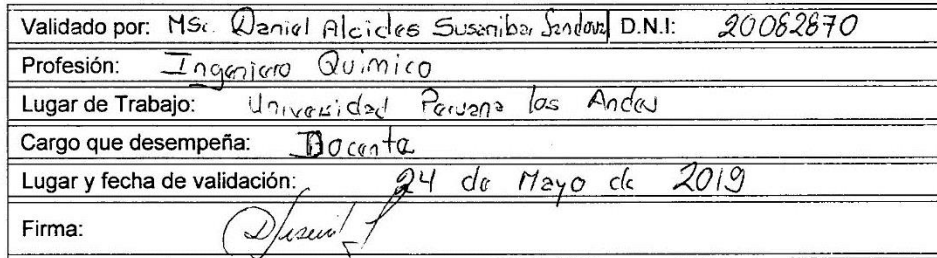 Validado por: MSc. Daniel Alcides Susanibar Sandoval D.N.I: 20062870
Profesión: Ingeniero Químico
Lugar de Trabajo: Universidad Peruana los Andes
Cargo que desempeña: Docente
Lugar y fecha de validación: 24 de Mayo de 2019
Firma: